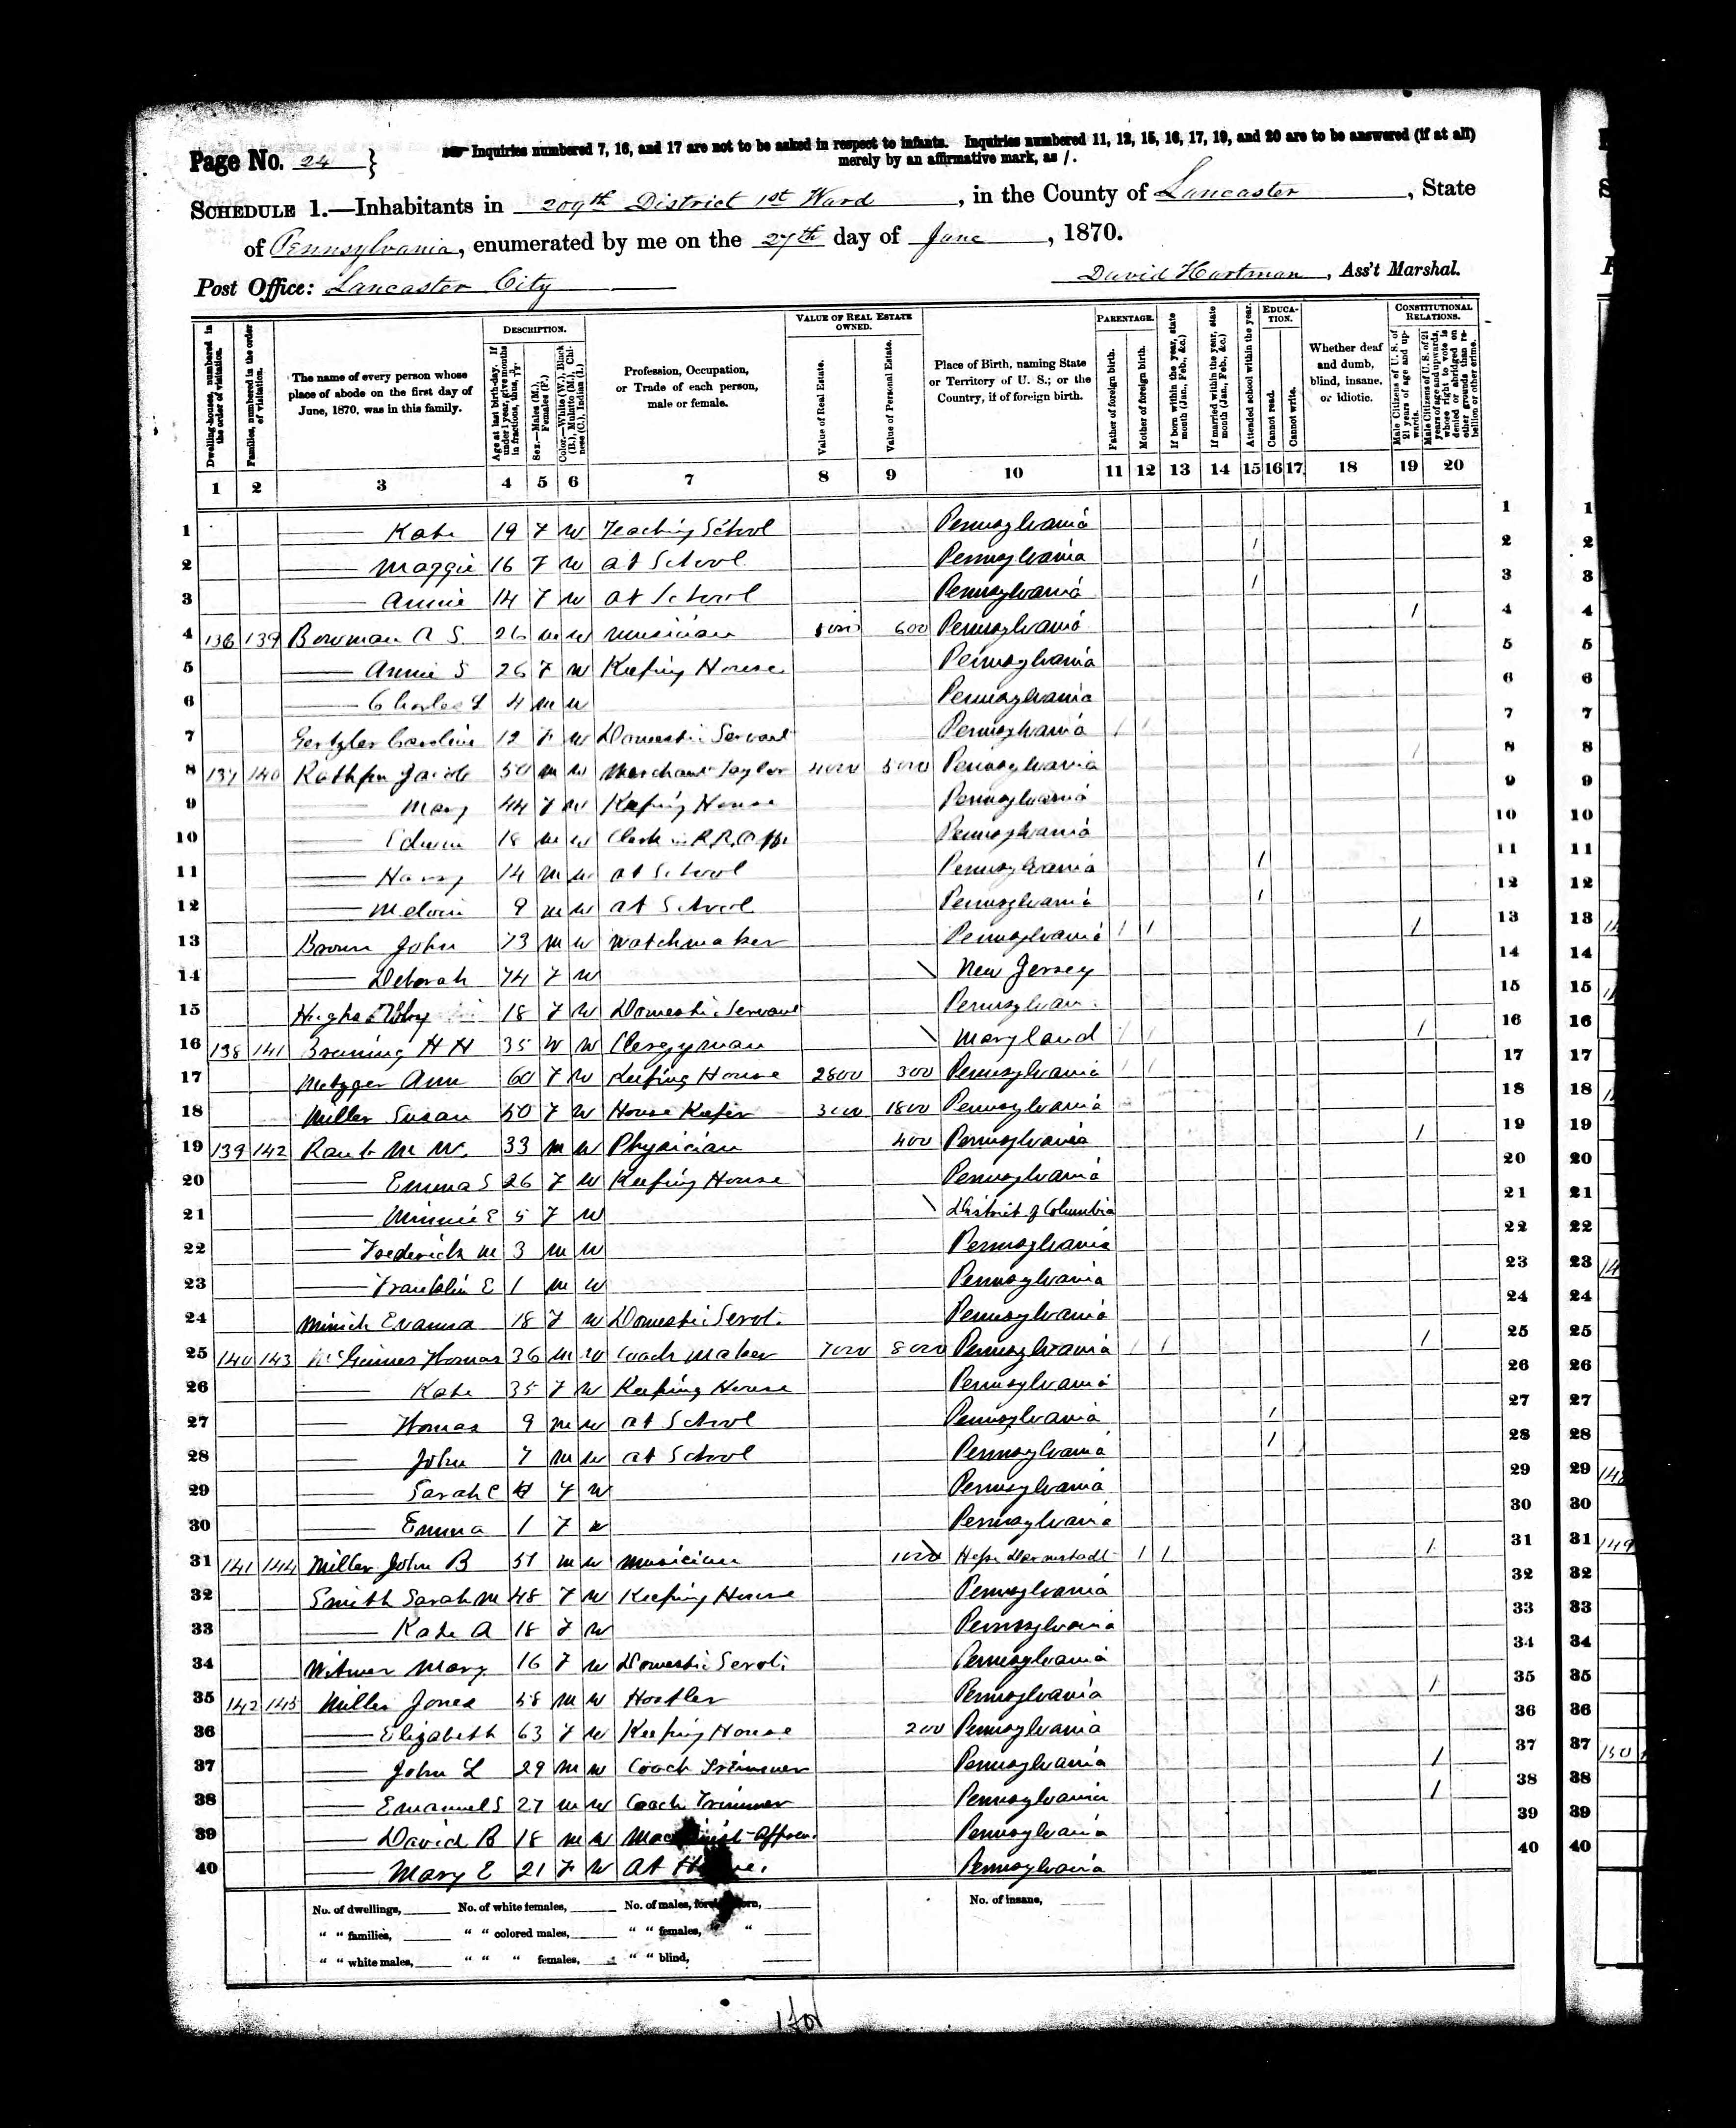 Page No. 24 }
Inquiries numbered 7, 16, and 17 are not to be asked in respect to infants. Inquiries numbered 11, 12, 15, 16, 17, 19, and 20 are to be answered (if at all)
merely by an affirmative mark, as /.
SCHEDULE 1.—Inhabitants in 209th District 1st Ward, in the County of Lancaster, State
of Pennsylvania, enumerated by me on the 27th day of June, 1870.
Post Office: Lancaster City
David Hartman, Ass't Marshal.
Dwelling-houses, numbered in the order of visitation.
Families, numbered in the order of visitation.
The name of every person whose place of abode on the first day of June, 1870, was in this family.
DESCRIPTION.
Age at last birth-day. If under 1 year, give months in fractions, thus, 3/12
Sex.—Males (M.), Females (F.)
Color.—White (W.), Black (B.), Mulatto (M.), Chinese (C.), Indian (I.)
Profession, Occupation, or Trade of each person, male or female.
VALUE OF REAL ESTATE OWNED.
Value of Real Estate.
Value of Personal Estate.
Place of Birth, naming State or Territory of U. S.; or the Country, if of foreign birth.
PARENTAGE.
Father of foreign birth.
Mother of foreign birth.
If born within the year, state month (Jan., Feb., &c.)
If married within the year, state month (Jan., Feb., &c.)
Attended school within the year.
EDUCATION.
Cannot read.
Cannot write.
Whether deaf and dumb, blind, insane, or idiotic.
CONSTITUTIONAL RELATIONS.
Male Citizens of U. S. of 21 years of age and upwards.
Male Citizens of U. S. of 21 years of age and upwards, whose right to vote is denied or abridged on other grounds than rebellion or other crime.
1 2 3 4 5 6 7 8 9 10 11 12 13 14 15 16 17 18 19 20
1 —— Kate 19 F W Teaching School Pennsylvania 1
2 —— Maggie 16 F W at School Pennsylvania / 2
3 —— Annie 14 F W at School Pennsylvania / 3
4 136 139 Bowman A S. 26 M W Musician 600 Pennsylvania / 4
5 —— Annie S 26 F W Keeping House Pennsylvania 5
6 —— Charles L 4 M W Pennsylvania 6
7 Caroline 12 F W Domestic Servant Pennsylvania / / 7
8 137 140 Jacob 50 M W Merchant Taylor 4000 5000 Pennsylvania / 8
9 —— Mary 44 F W Keeping House Pennsylvania 9
10 —— Edwin 18 M W Clerk in R.R. Off. Pennsylvania 10
11 —— Harry 14 M W at School Pennsylvania / 11
12 —— Melvin 9 M W at School Pennsylvania / 12
13 Brown John 73 M W Watchmaker Pennsylvania / / / 13
14 —— Deborah 74 F W New Jersey 14
15 18 F W Domestic Servant Pennsylvan 15
16 138 141 H H 35 W W Clergyman Maryland / / / 16
17 Metzger Ann 60 F W Keeping House 2800 300 Pennsylvania / / 17
18 Miller Susan 50 F W House Keeper 3000 1800 Pennsylvania 18
19 139 142 Raub M W. 33 M W Physician 400 Pennsylvania / 19
20 —— Emma S 26 F W Keeping House Pennsylvania 20
21 —— Minnie E 5 F W District of Columbia 21
22 —— Frederick M 3 M W Pennsylvania 22
23 —— Franklin E 1 M W Pennsylvania 23
24 Minich Evanna 18 F W Domestic Servt. Pennsylvania 24
25 140 143 Thomas 36 M W Coach Maker 7000 8000 Pennsylvania / / / 25
26 —— Kate 35 F W Keeping House Pennsylvania 26
27 —— Thomas 9 M W at School Pennsylvania / 27
28 —— John 7 M W at School Pennsylvania / 28
29 —— Sarah C F W Pennsylvania 29
30 —— Emma 1 F W Pennsylvania 30
31 141 144 Miller John B 51 M W Musician 1000 Hesse Darmstadt / / / 31
32 Smith Sarah M 48 F W Keeping House Pennsylvania 32
33 —— Kate A 18 F W Pennsylvania 33
34 Witmer Mary 16 F W Domestic Servt. Pennsylvania 34
35 142 145 Miller Jonas 58 M W Hostler Pennsylvania / 35
36 —— Elizabeth 63 F W Keeping House 200 Pennsylvania 36
37 —— John L 29 M W Coach Trimmer Pennsylvania / 37
38 —— Emanuel S 27 M W Coach Trimmer Pennsylvania / 38
39 —— David B 18 M W Machinist Appren. Pennsylvania 39
40 —— Mary E 21 F W At Home. Pennsylvania 40
No. of dwellings, No. of white females, No. of males, foreign born, No. of insane,
" " families, " " colored males, " " females, "
" " white males, " " " females, " " blind,